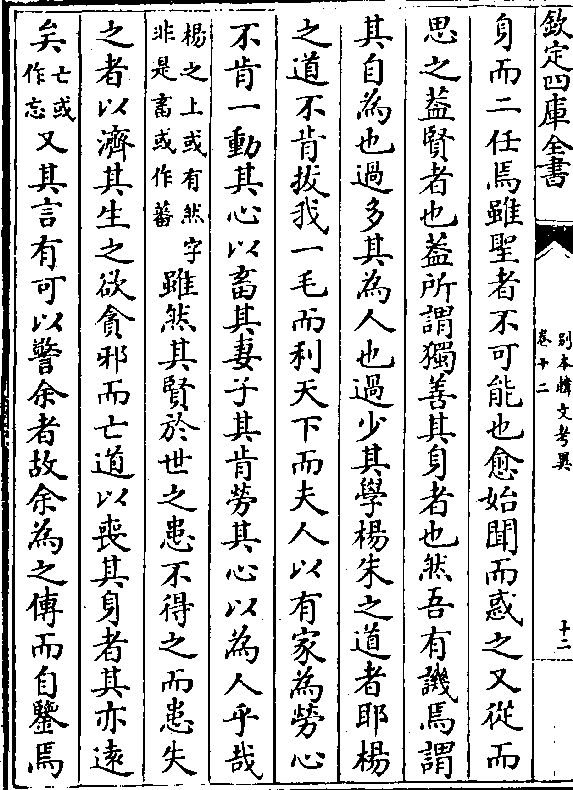 欽定四庫全書
別本韓文考異
卷十二
十二
身而二任焉雖聖者不可能也愈始聞而惑之又從而
思之葢賢者也葢所謂獨善其身者也然吾有譏焉謂
其自為也過多其為人也過少其學楊朱之道者耶楊
之道不肯拔我一毛而利天下而夫人以有家為勞心
不肯一動其心以畜其妻子其肯勞其心以為人乎哉
楊之上或有然字
非是畜或作蓄
雖然其賢於世之患不得之而患失
之者以濟其生之欲貪邪而亡道以喪其身者其亦遠
矣
亡或
作忘
又其言有可以警余者故余為之傳而自鑒焉